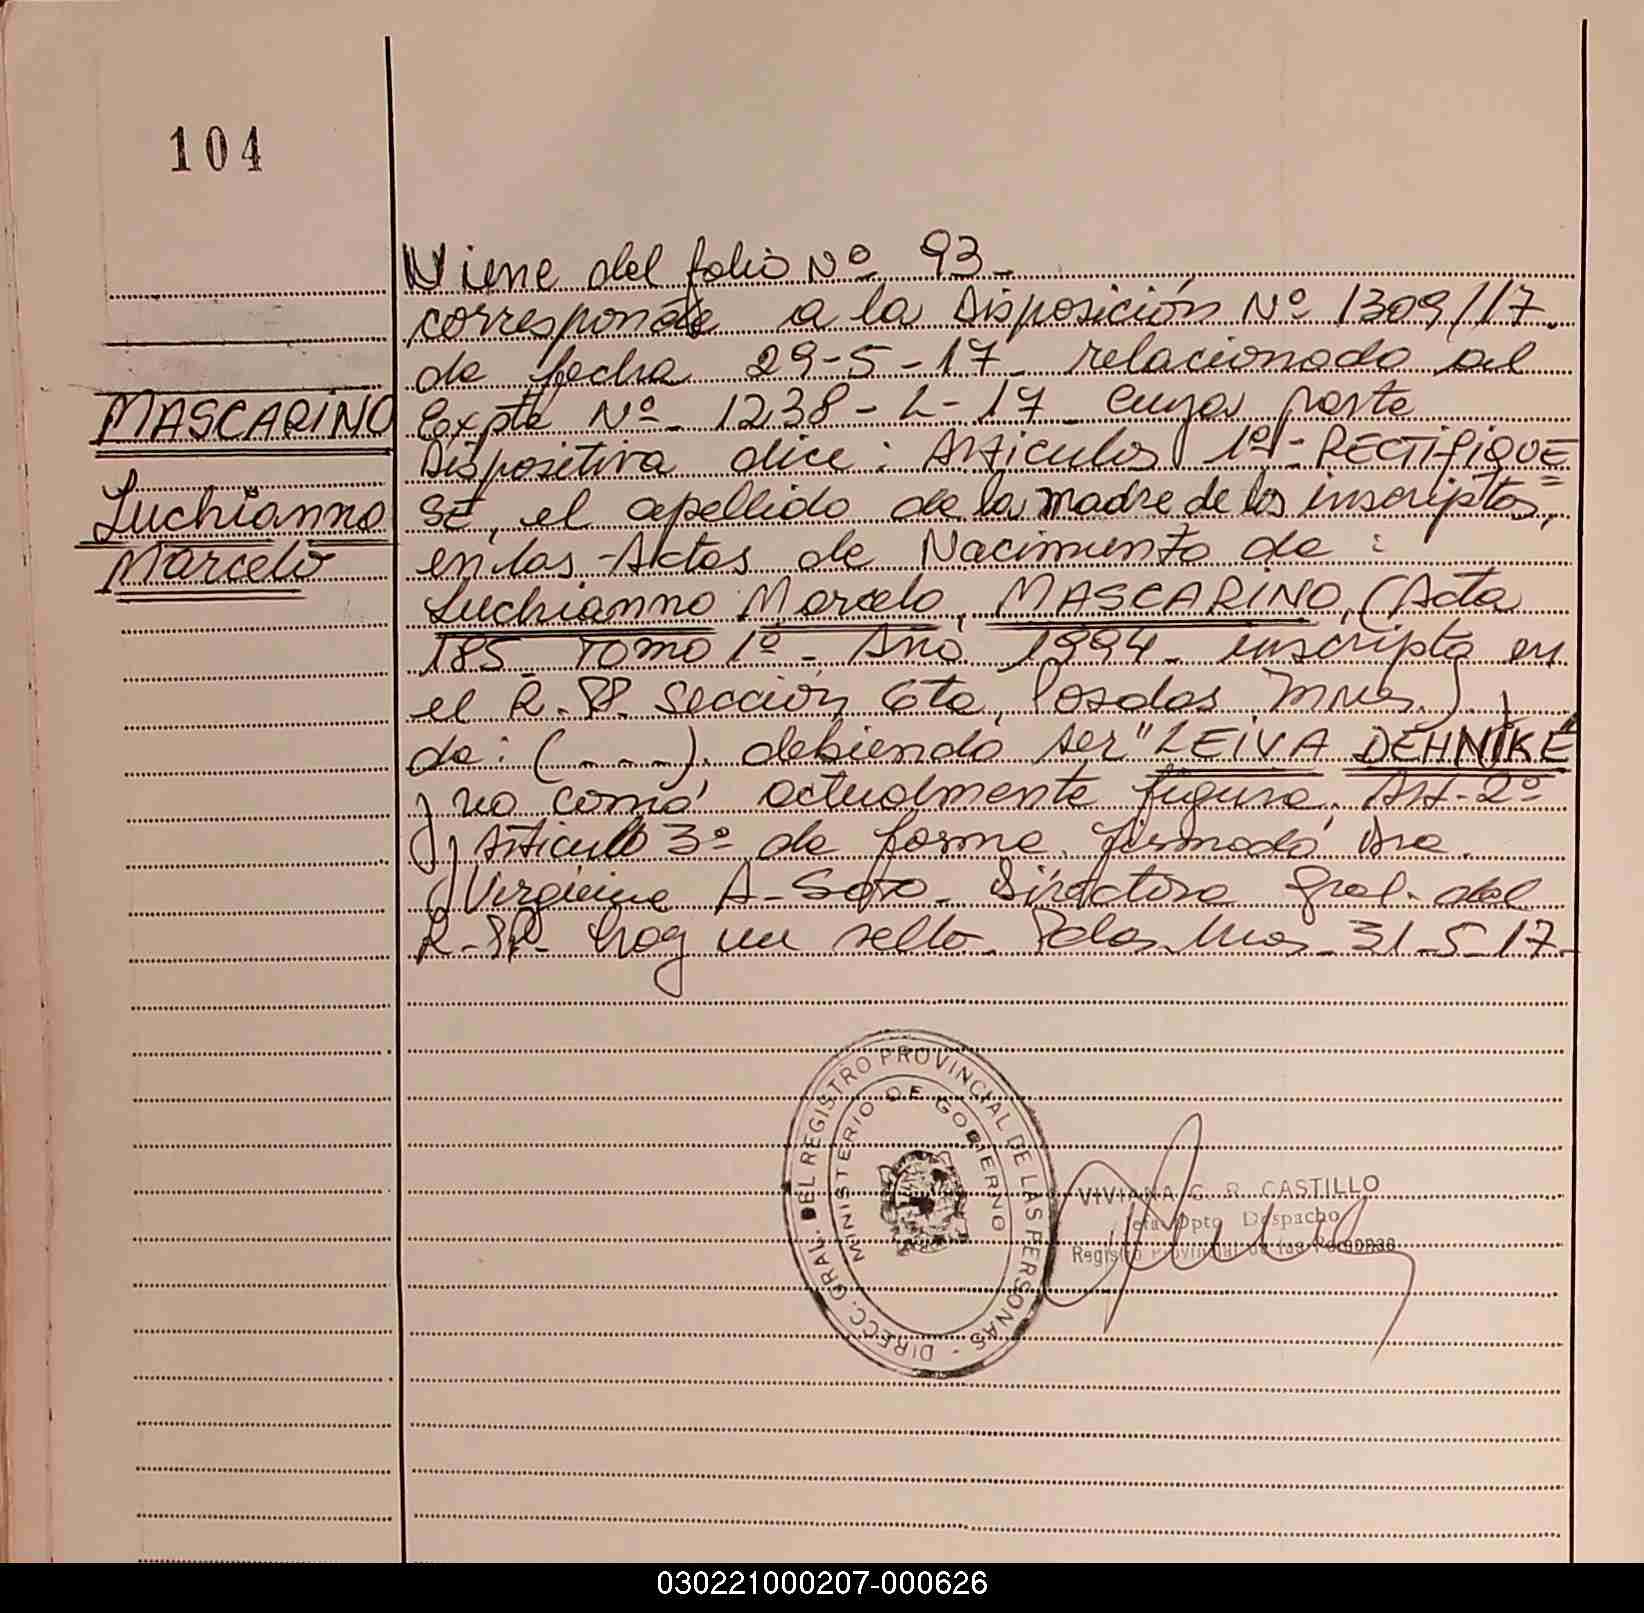 104
Viene del folio Nº 93-
corresponde a la Disposición Nº 1309/17.
de fecha 29-5-17- relacionado al
MASCARINO
Expte Nº 1238-L-17 cuya parte
Dispositiva dice: Articulos 1º- RECTIFIQUE
Luchianno
SE, el apellido de la madre de los inscriptos,
Marcelo
en las Actas de Nacimiento de:
Luchianno Marcelo, MASCARINO, (Acta
185 Tomo 1º- Año 1994- inscripta en
el R.P.P. Sección 6ta, Posadas Mnes.) y
de: (----). debiendo ser "LEIVA DEHNIKE"
y no como actualmente figura. Art-2º
y Articulo 3º de forma. firmado Dra.
Virginia A- Soto- Directora Gral. del
R-PP- hay un sello- Pdas. Mnes- 31-5-17-
DIRECC. GRAL. DEL REGISTRO PROVINCIAL DE LAS PERSONAS -
MINISTERIO DE GOBIERNO
VIVIANA G. R. CASTILLO
Jefa Dpto Despacho
Registro Provincial de las Personas
030221000207-000626